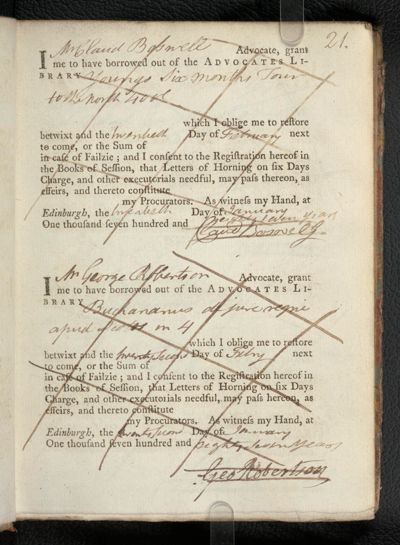 21.
I Mr Claud Boswell Advocate, grant
me to have borrowed out of the ADVOCATES LI-
BRARY Youngs Six months Tour
to the north 4 vols
which I oblige me to restore
betwixt and the twentieth Day of February next
to come, or the Sum of
in case of Failzie; and I consent to the Registration hereof in
the Books of Session, that Letters of Horning on six Days
Charge, and other executorials needful, may pass thereon, as
effeirs, and thereto constitute
my Procurators. As witness my Hand, at
Edinburgh, the twentieth Day of January
One thousand seven hundred and eighty seven years
Claud Boswell
I Mr George Robertson Advocate, grant
me to have borrowed out of the ADVOCATES LI-
BRARY Buchananus de jure regni
apud in 4
which I oblige me to restore
betwixt and the twenty second Day of Febry next
to come, or the Sum of
in case of Failzie; and I consent to the Registration hereof in
the Books of Session, that Letters of Horning on six Days
Charge, and other executorials needful, may pass hereon, as
effeirs, and thereto constitute
my Procurators. As witness my Hand, at
Edinburgh, the twenty second Day of January
One thousand seven hundred and eighty seven years
Geo Robertson